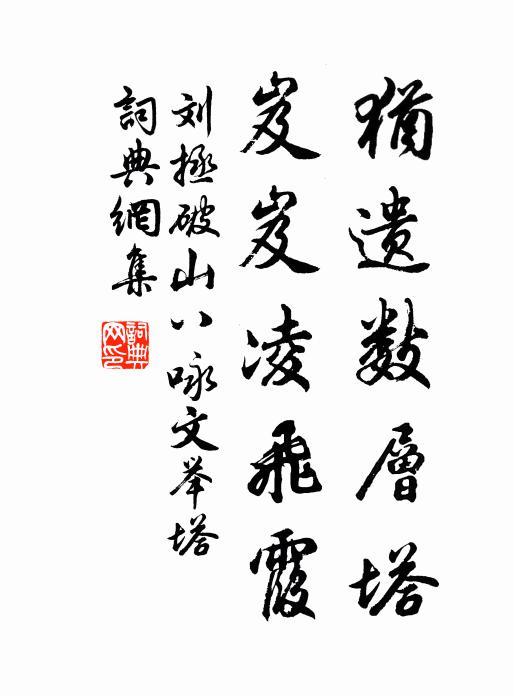 猶遺數層塔
岌岌凌飛霞
刘拯破山八咏文举塔
詞典網集
詞典網印